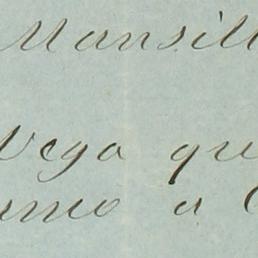 Mansill
Vega que
a